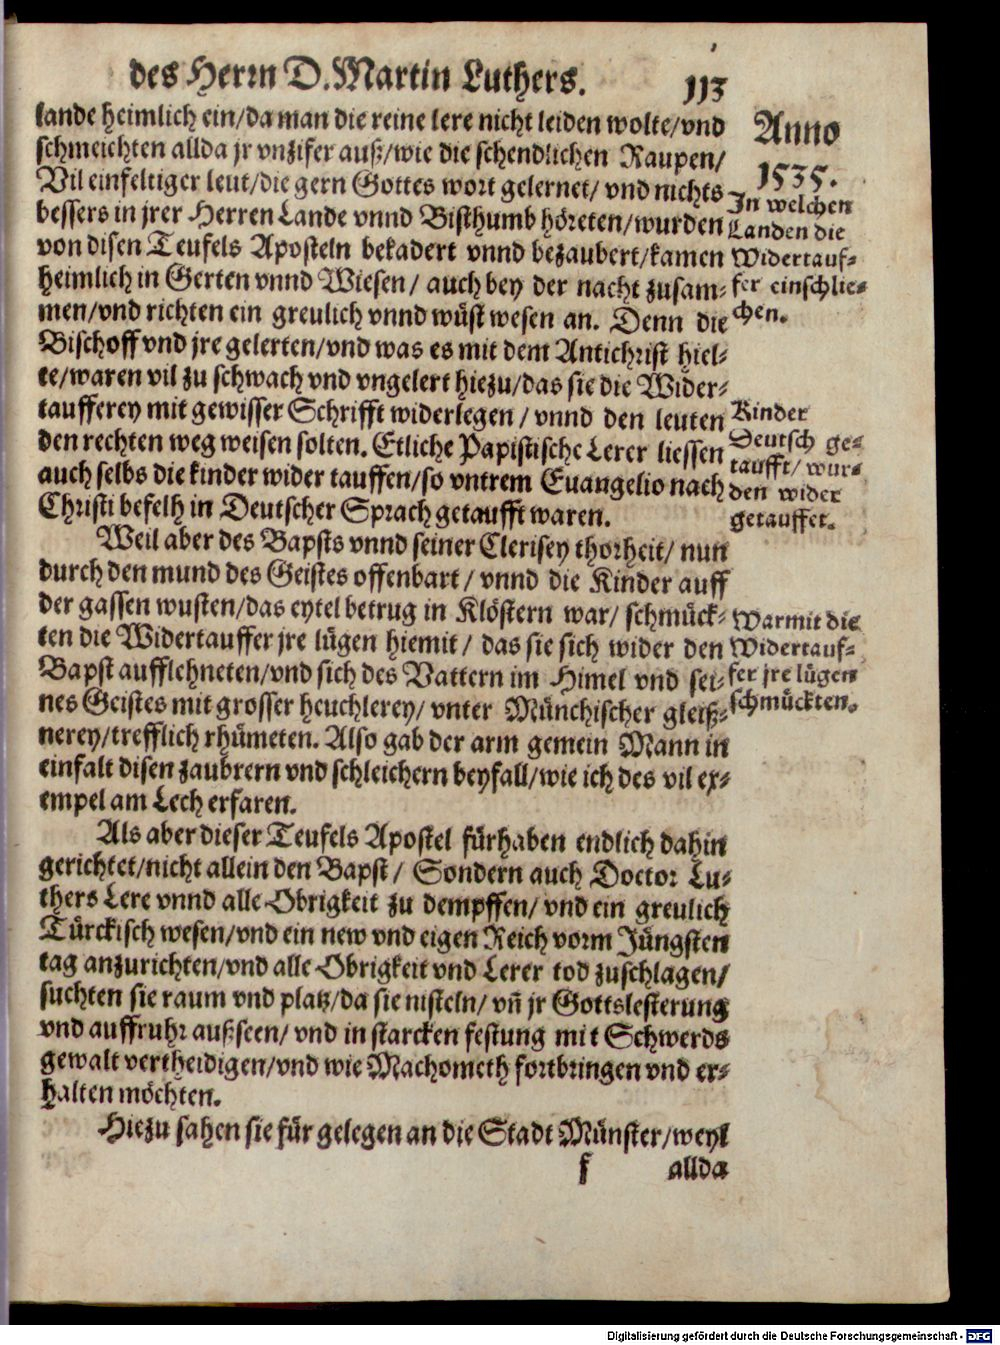 des Herrn D. Martin Luthers. 113
lande heimlich ein/da man die reine lere nicht leiden wolte/vnd
schmeichten allda jr vnzifer auß/wie die schendlichen Raupen/
Vil einfeltiger leut/die gern Gottes wort gelernet/ vnd nichts
bessers in jrer Herren Lande vnnd Bisthumb höreten/wurden
von disen Teufels Aposteln bekadert vnnd bezaubert/kamen
heimlich in Gerten vnnd Wiesen/ auch bey der nacht zusam-
men/vnd richten ein greulich vnnd wüst wesen an. Denn die
Bischoff vnd jre gelerten/vnd was es mit dem Antichrist hiel-
te/waren vil zu schwach vnd vngelert hiezu/das sie die Wider-
taufferey mit gewisser Schrifft widerlegen/ vnnd den leuten
den rechten weg weisen solten. Etliche Papistische Lerer liessen
auch selbs die kinder wider tauffen/so vntrem Euangelio nach
Christi befelh in Deutscher Sprach getaufft waren.
Weil aber des Bapsts vnnd seiner Clerisey thorheit/ nun
durch den mund des Geistes offenbart/ vnnd die Kinder auff
der gassen wusten/das eytel betrug in Klöstern war/ schmück-
ten die Widertauffer jre lügen hiemit/ das sie sich wider den
Bapst aufflehneten/vnd sich des Vattern im Himel vnd sei-
nes Geistes mit grosser heuchlerey/ vnter Münchischer gleiß-
nerey/trefflich rhümeten. Also gab der arm gemein Mann in
einfalt disen zaubrern vnd schleichern beyfall/wie ich des vil ex-
empel am Lech erfaren.
Als aber dieser Teufels Apostel fürhaben endlich dahin
gerichtet/nicht allein den Bapst/ Sondern auch Doctor Lu-
thers Lere vnnd alle Obrigkeit zu dempffen/ vnd ein greulich
Türckisch wesen/vnd ein new vnd eigen Reich vorm Jüngsten
tag anzurichten/vnd alle Obrigkeit vnd Lerer tod zuschlagen/
suchten sie raum vnd platz/da sie nisteln/ vñ jr Gottslesterung
vnd auffruhr außseen/ vnd in starcken festung mit Schwerds
gewalt vertheidigen/vnd wie Machometh fortbringen vnd er-
halten möchten.
Hiezu sahen sie für gelegen an die Stadt Münster/weyl
f allda
Anno
1535.
In welchen
Landen die
Widertauf-
fer einschlie-
chen.
Kinder
Deutsch ge-
taufft/ wur-
den wider
getauffet.
Warmit die
Widertauf-
fer jre lügen
schmückten.
Digitalisierung gefördert durch die Deutsche Forschungsgemeinschaft - DFG